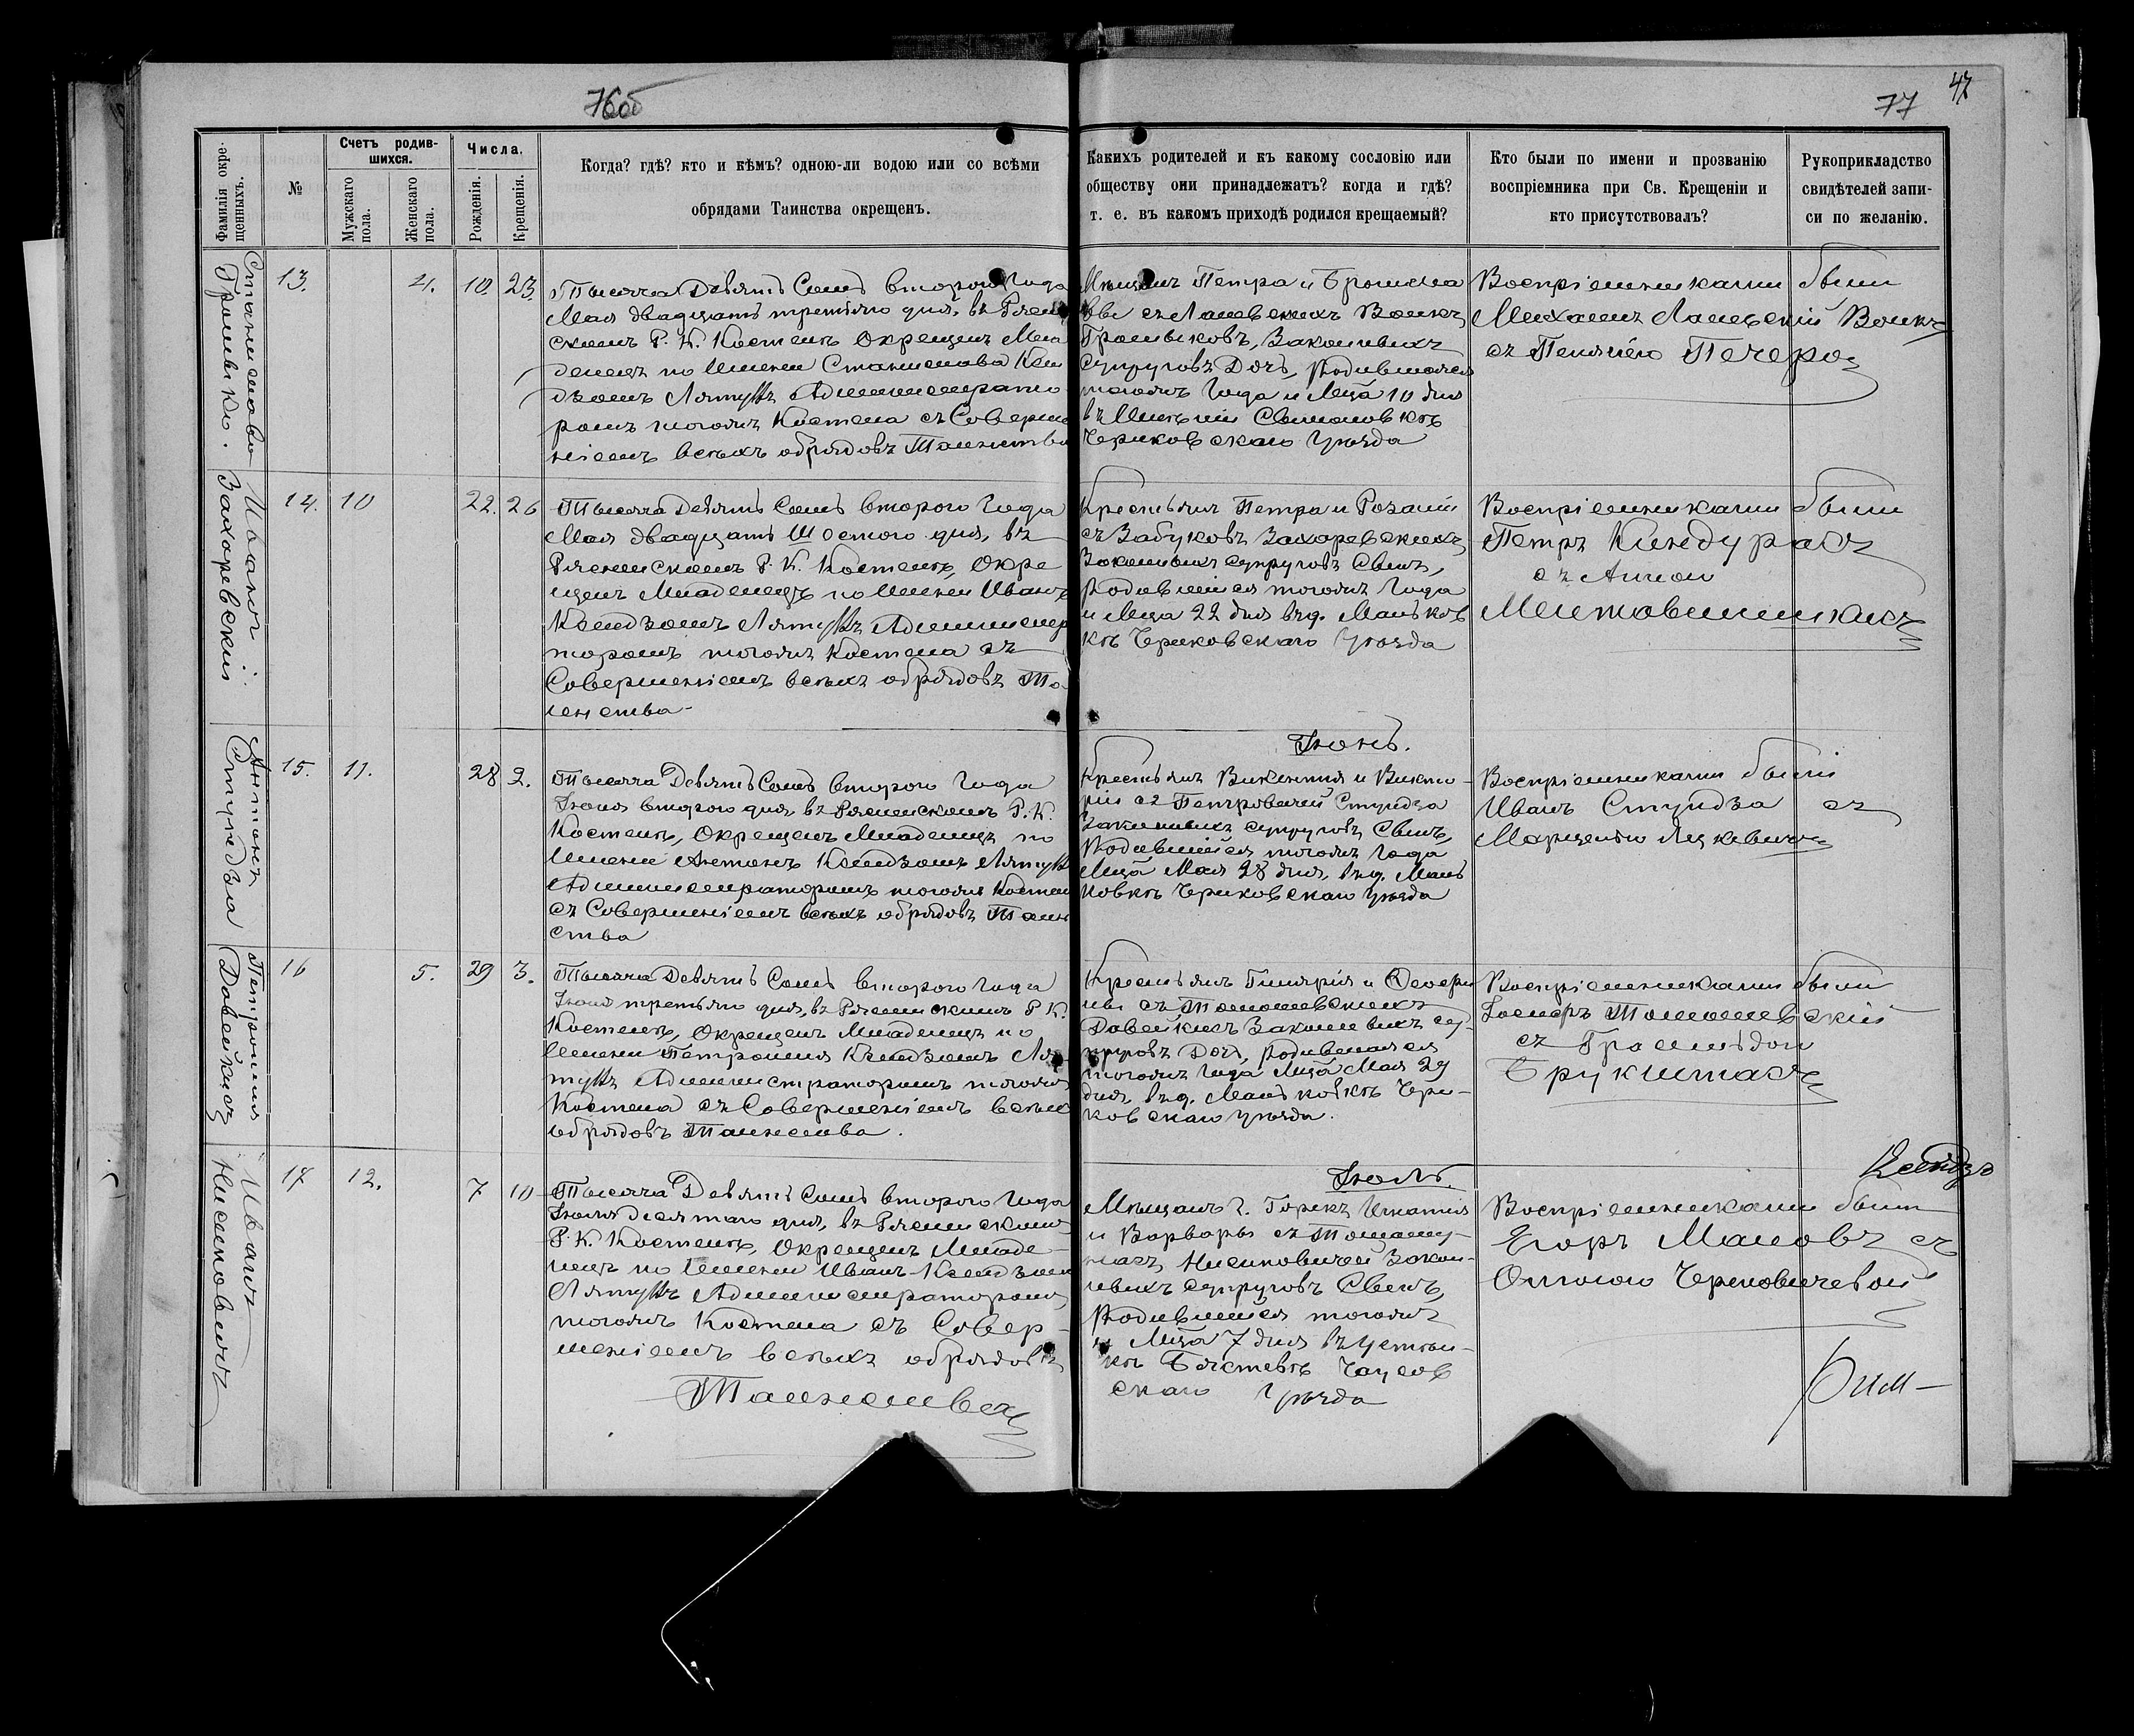 76об
77
47
Фамилія окре-
щенныхъ.
№
Счетъ родив-
шихся.
Мужскаго
пола.
Женскаго
пола.
Числа.
Рожденія.
Крещенія.
Когда? гдѣ? кто и кѣмъ? одною-ли водою или со всѣми
обрядами Таинства окрещенъ.
Какихъ родителей и къ какому сословію или
обществу они принадлежатъ? когда и гдѣ?
т. е. въ какомъ приходѣ родился крещаемый?
Кто были по имени и прозванію
воспріемника при Св. Крещеніи и
кто присутствовалъ?
Рукоприкладство
свидѣтелей запи-
си по желанію.
Станислава
Громыко.
13.
4.
10.
23.
Тысяча Девятьсотъ второго Года
Мая двадцать третьяго дня, въ Рясен
скомъ Р. К. Костелѣ Окрещенъ Мла
денецъ по Имени Станислава Ксен
дзомъ Администрато
ромъ тогожъ Костела съ Соверше
ніемъ всѣхъ обрядовъ Таинства
Мѣщанъ Петра и Бронисла
вы съ
Громыковъ, Законныхъ
супруговъ Дочь, Родившаяся
тогожъ Года и Мца 10 дня
въ Имѣніи
Чериковскаго Уѣзда
Воспріемниками были
Михаилъ
съ
Иванъ
Захоревскій
14.
10
22.
26
Тысяча Девятьсотъ второго Года
Мая двадцать Шестого дня, въ
Рясенскомъ Р. К. Костелѣ, Окре
щенъ Младенецъ по Имени Иванъ
Ксендзомъ Администра
торомъ тогожъ Костела съ
Совершеніемъ всѣхъ обрядовъ Та
инства
Крестьянъ Петра и Розаліи
съ Забуковъ Захоревскихъ
Законныхъ супруговъ Сынъ,
Родившійся тогожъ Года
и Мца 22 дня въ д. Маньков
кѣ Чериковскаго Уѣзда
Воспріемниками были
Петръ
съ Анною
Іюнь.
Антонъ
Стундза
15.
11.
28
2.
Тысяча Девятьсотъ второго Года
Іюня второго дня, въ Рясенскомъ Р. К.
Костелѣ, Окрещенъ Младенецъ по
Имени Антонъ Ксендзомъ
Администраторомъ тогожъ Костел
съ Совершеніемъ всѣхъ обрядовъ Таин
ства
Крестьянъ Викентія и Викто-
ріи съ Петровичей Стундза
Законныхъ супруговъ Сынъ,
Родившійся тогожъ Года
Мца Мая 28 дня, въ д. Мань
ковкѣ Чериковскаго Уѣзда
Воспріемниками были
Иванъ Стундза съ
Петронія
Довейкисъ
16
5.
29
3.
Тысяча Девятьсотъ второго Года
Іюня третьяго дня, въ Рясенскомъ Р. К.
Костелѣ, Окрещенъ Младенецъ по
Имени Петронія Ксендзомъ
Администраторомъ тогожъ
Костела съ Совершеніемъ всѣхъ
обрядовъ Таинства.
Крестьянъ
съ
Довейкисъ Законныхъ су-
пруговъ Дочь, Родившаяся
тогожъ Года Мца Мая 29
дня, въ д. Маньковкѣ Чери-
ковскаго уѣзда.
Воспріемниками были
съ
Іюль.
Иванъ
Нисиповичъ
17
12.
7
10
Тысяча Девятьсотъ второго Года
Іюля десятаго дня, въ Рясенскомъ
Р. К. Костелѣ, Окрещенъ Младе-
нецъ по Имени Иванъ Ксендзомъ
Администраторомъ
тогожъ Костела съ Совер-
шеніемъ всѣхъ обрядовъ
Таинства
Мѣщанъ г. Горекъ Игнатія
и Варвары съ
Законныхъ супруговъ Сынъ,
Родившійся тогожъ
и Мца 7 дня въ
Чаусов
скаго Уѣзда
Воспріемниками были
Егоръ съ
Ксендзъ